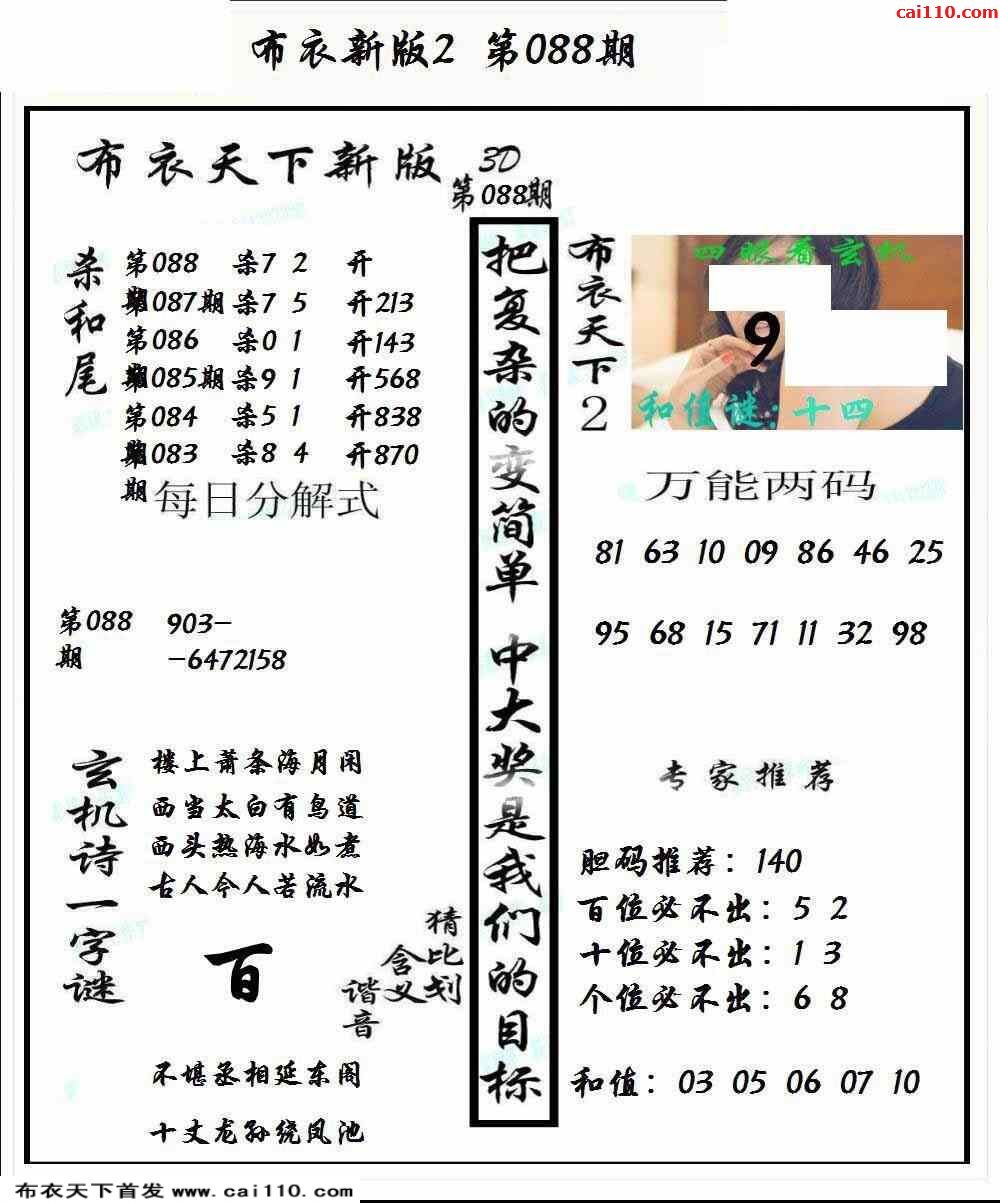 cai110.com
布衣新版2 第088期
布衣天下新版
3D
第088期
杀和尾
第088期 杀7 2 开
第087期 杀7 5 开213
第086期 杀0 1 开143
第085期 杀9 1 开568
第084期 杀5 1 开838
第083期 杀8 4 开870
每日分解式
第088期 903-
-6472158
玄机诗一字谜
楼上萧条海月闲
西当太白有鸟道
西头热海水如煮
古人今人若流水
百
猜比划
含义
谐音
不堪丞相延东阁
十丈龙孙绕凤池
把复杂的变简单 中大奖是我们的目标
布衣天下2
四眼看玄机
9
和值谜:十四
万能两码
81 63 10 09 86 46 25
95 68 15 71 11 32 98
专家推荐
胆码推荐：140
百位必不出：5 2
十位必不出：1 3
个位必不出：6 8
和值：03 05 06 07 10
布衣天下首发 www.cai110.com